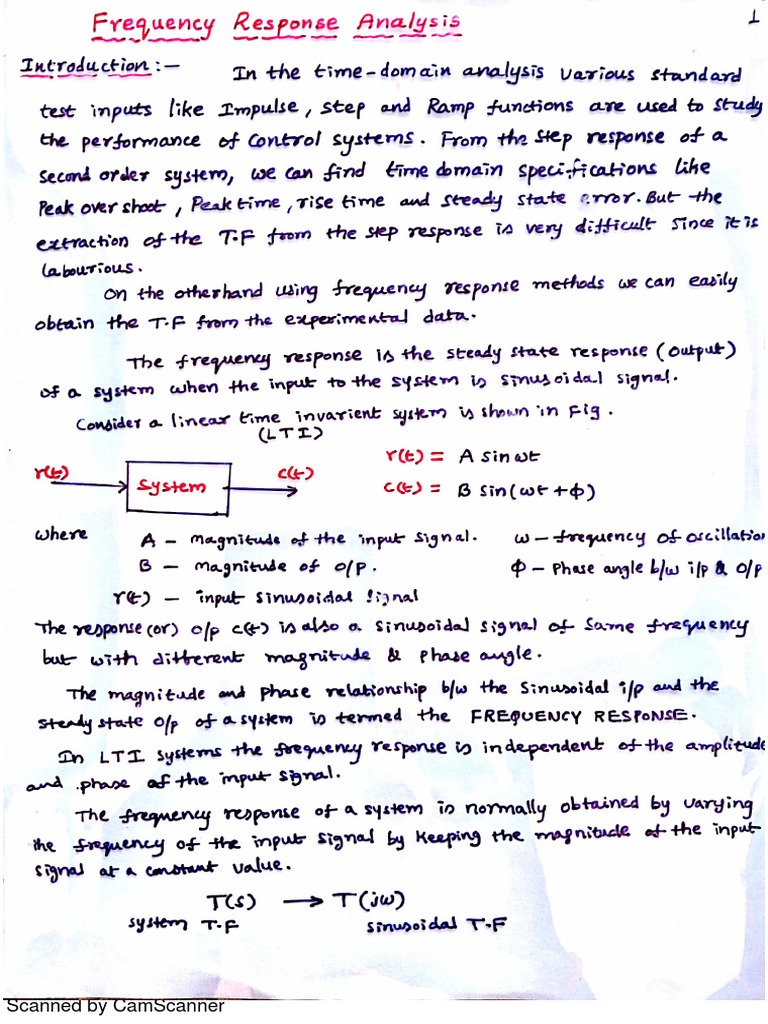 Frequency Response Analysis
1
Introduction :- In the time-domain analysis various standard
test inputs like Impulse, step and Ramp functions are used to study
the performance of control systems. From the step response of a
second order system, we can find time domain specifications like
Peak over shoot, Peak time, rise time and steady state error. But the
extraction of the T.F from the step response is very difficult since it is
labourious.
On the otherhand using frequency response methods we can easily
obtain the T.F from the experimental data.
The frequency response is the steady state response (output)
of a system when the input to the system is sinusoidal signal.
Consider a linear time invarient system is shown in Fig.
(LTI)
r(t) = A sin ωt
r(t) system c(t)
c(t) = B sin(ωt + ϕ)
where A - magnitude of the input signal. ω - frequency of oscillation
B - magnitude of o/p. ϕ - Phase angle b/w i/p & o/p
r(t) - input sinusoidal signal
The response (or) o/p c(t) is also a sinusoidal signal of same frequency
but with different magnitude & phase angle.
The magnitude and phase relationship b/w the sinusoidal i/p and the
steady state o/p of a system is termed the FREQUENCY RESPONSE.
In LTI systems the frequency response is independent of the amplitude
and phase of the input signal.
The frequency response of a system is normally obtained by varying
the frequency of the input signal by keeping the magnitude of the input
signal at a constant value.
T(s) → T(jω)
system T.F sinusoidal T.F
Scanned by CamScanner